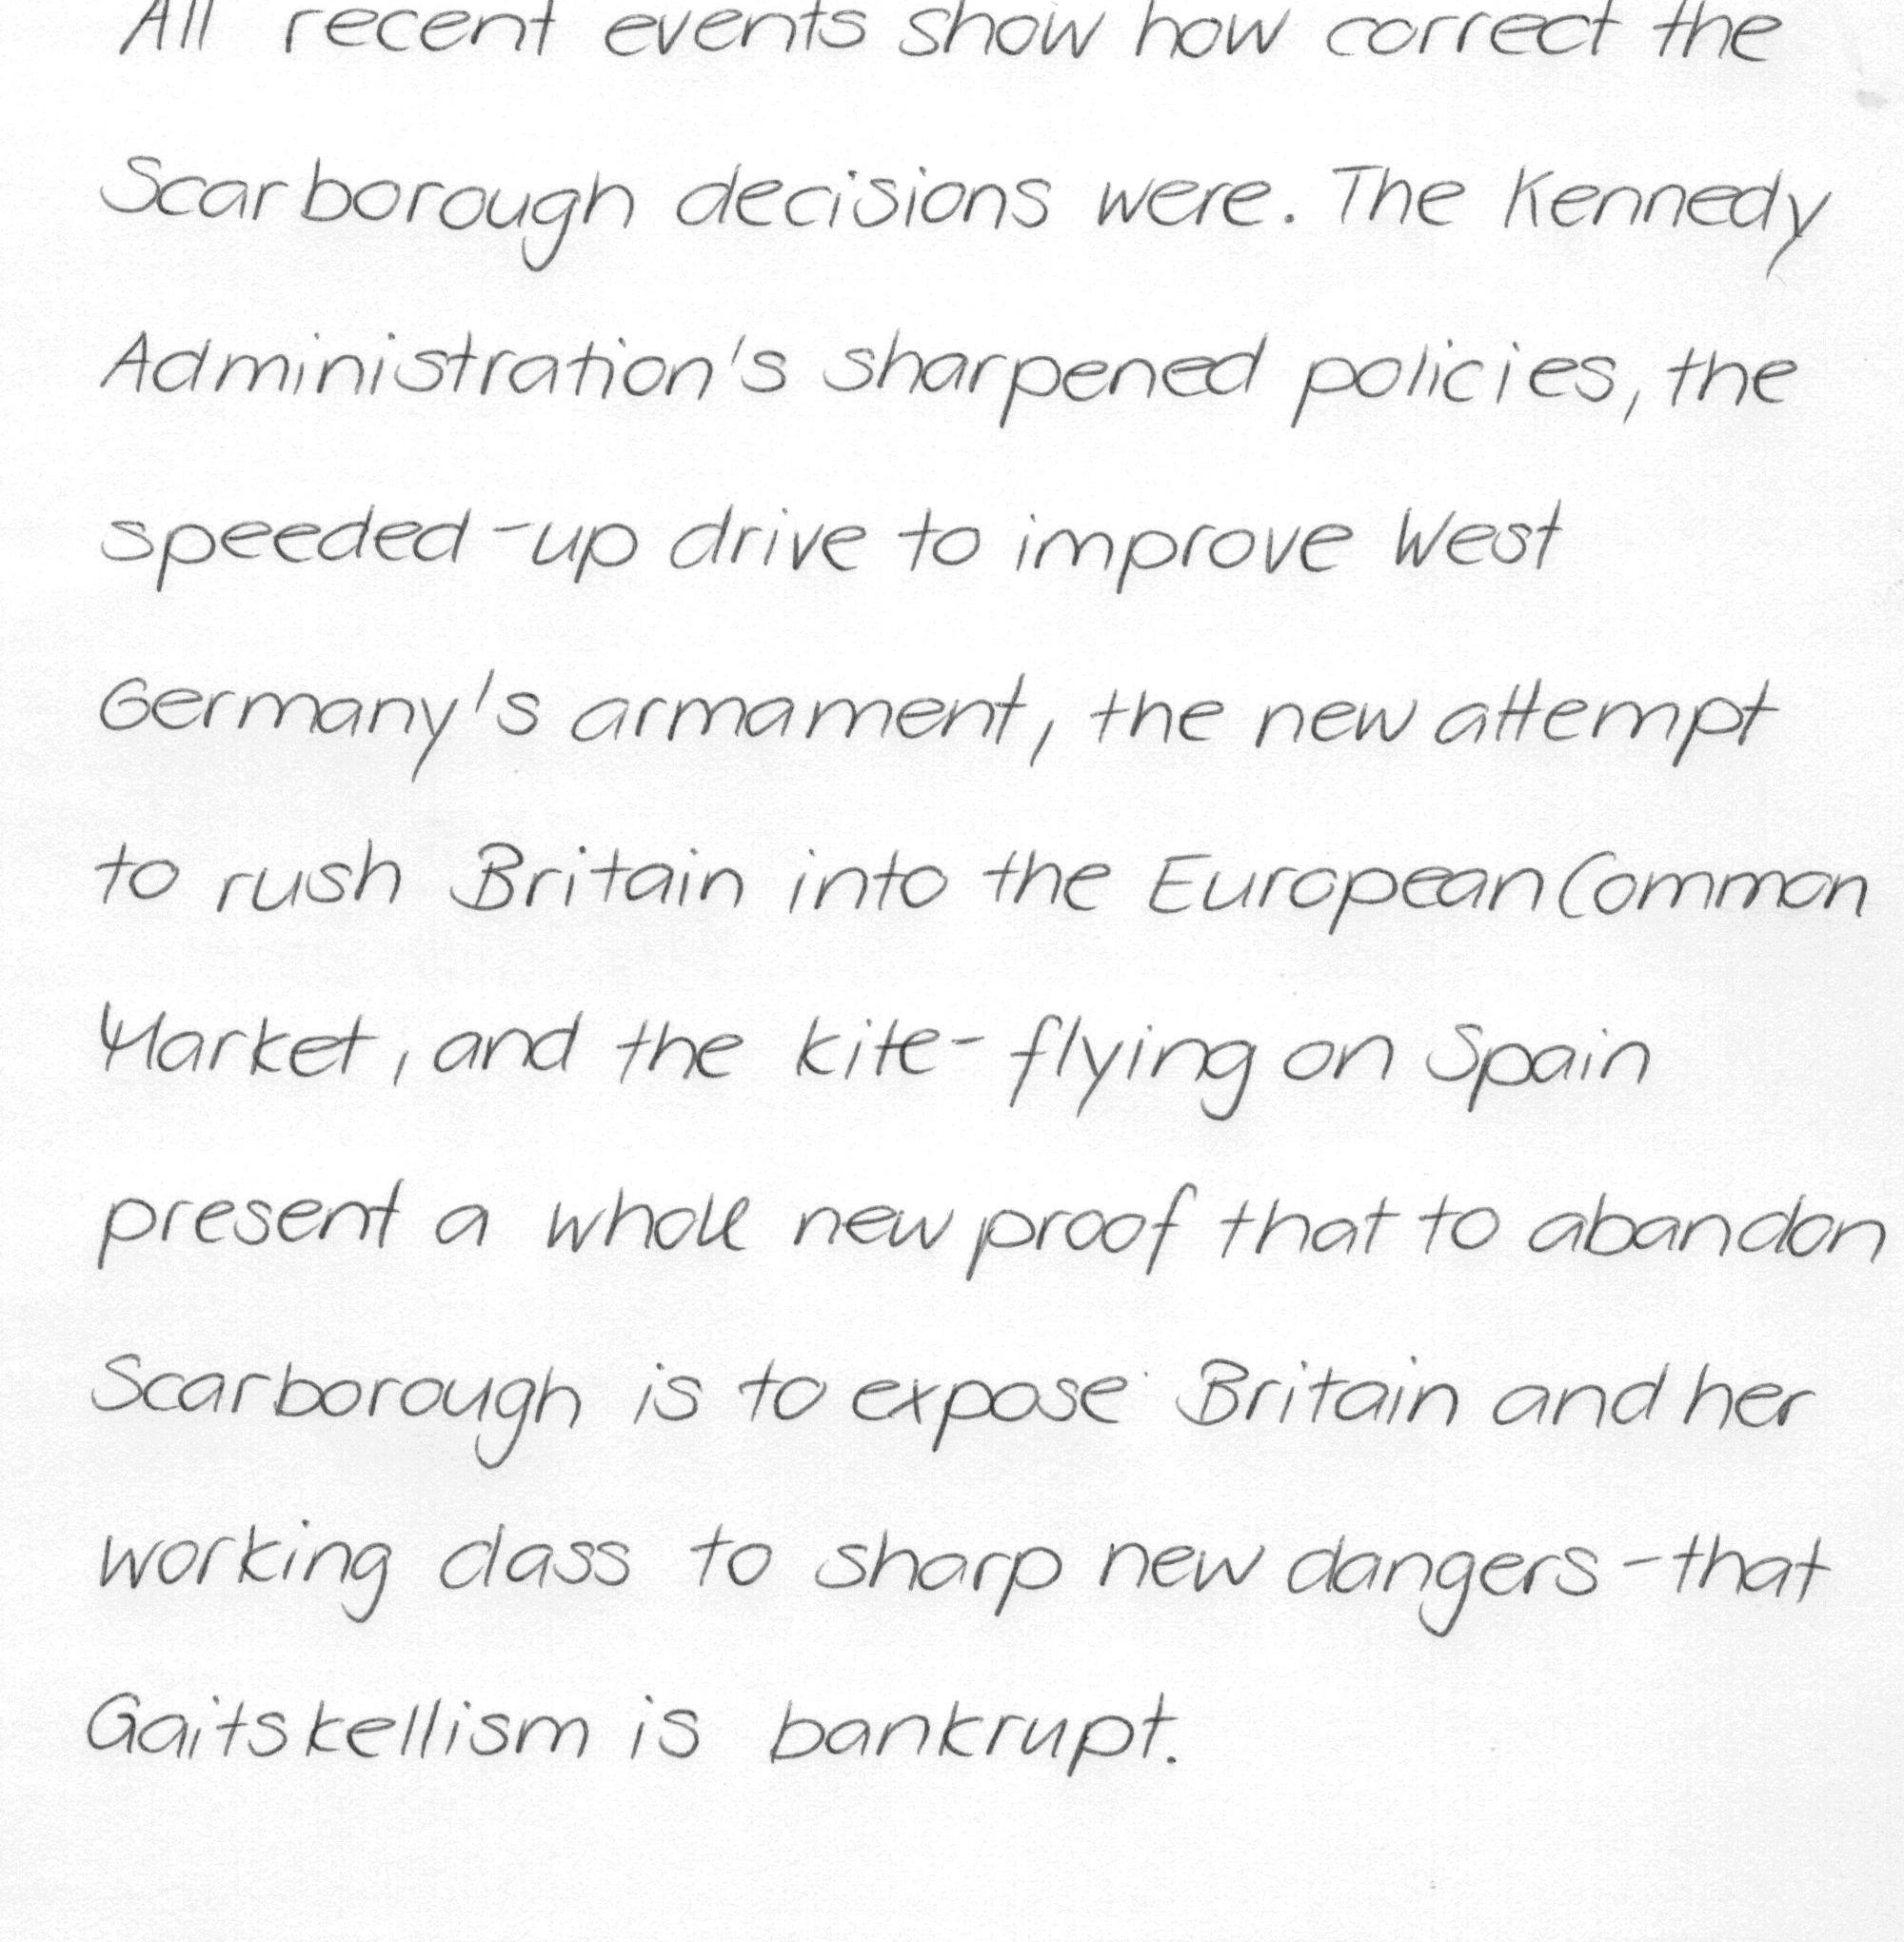 All recent events show how correct the
Scarborough decisions were. The Kennedy
Administration's sharpened policies, the
speeded-up drive to improve West
Germany's armament, the new attempt
to rush Britain into the European Common
Market, and the kite-flying on Spain
present a whole new proof that to abandon
Scarborough is to expose Britain and her
working class to sharp new dangers-that
Gaitskellism is bankrupt.